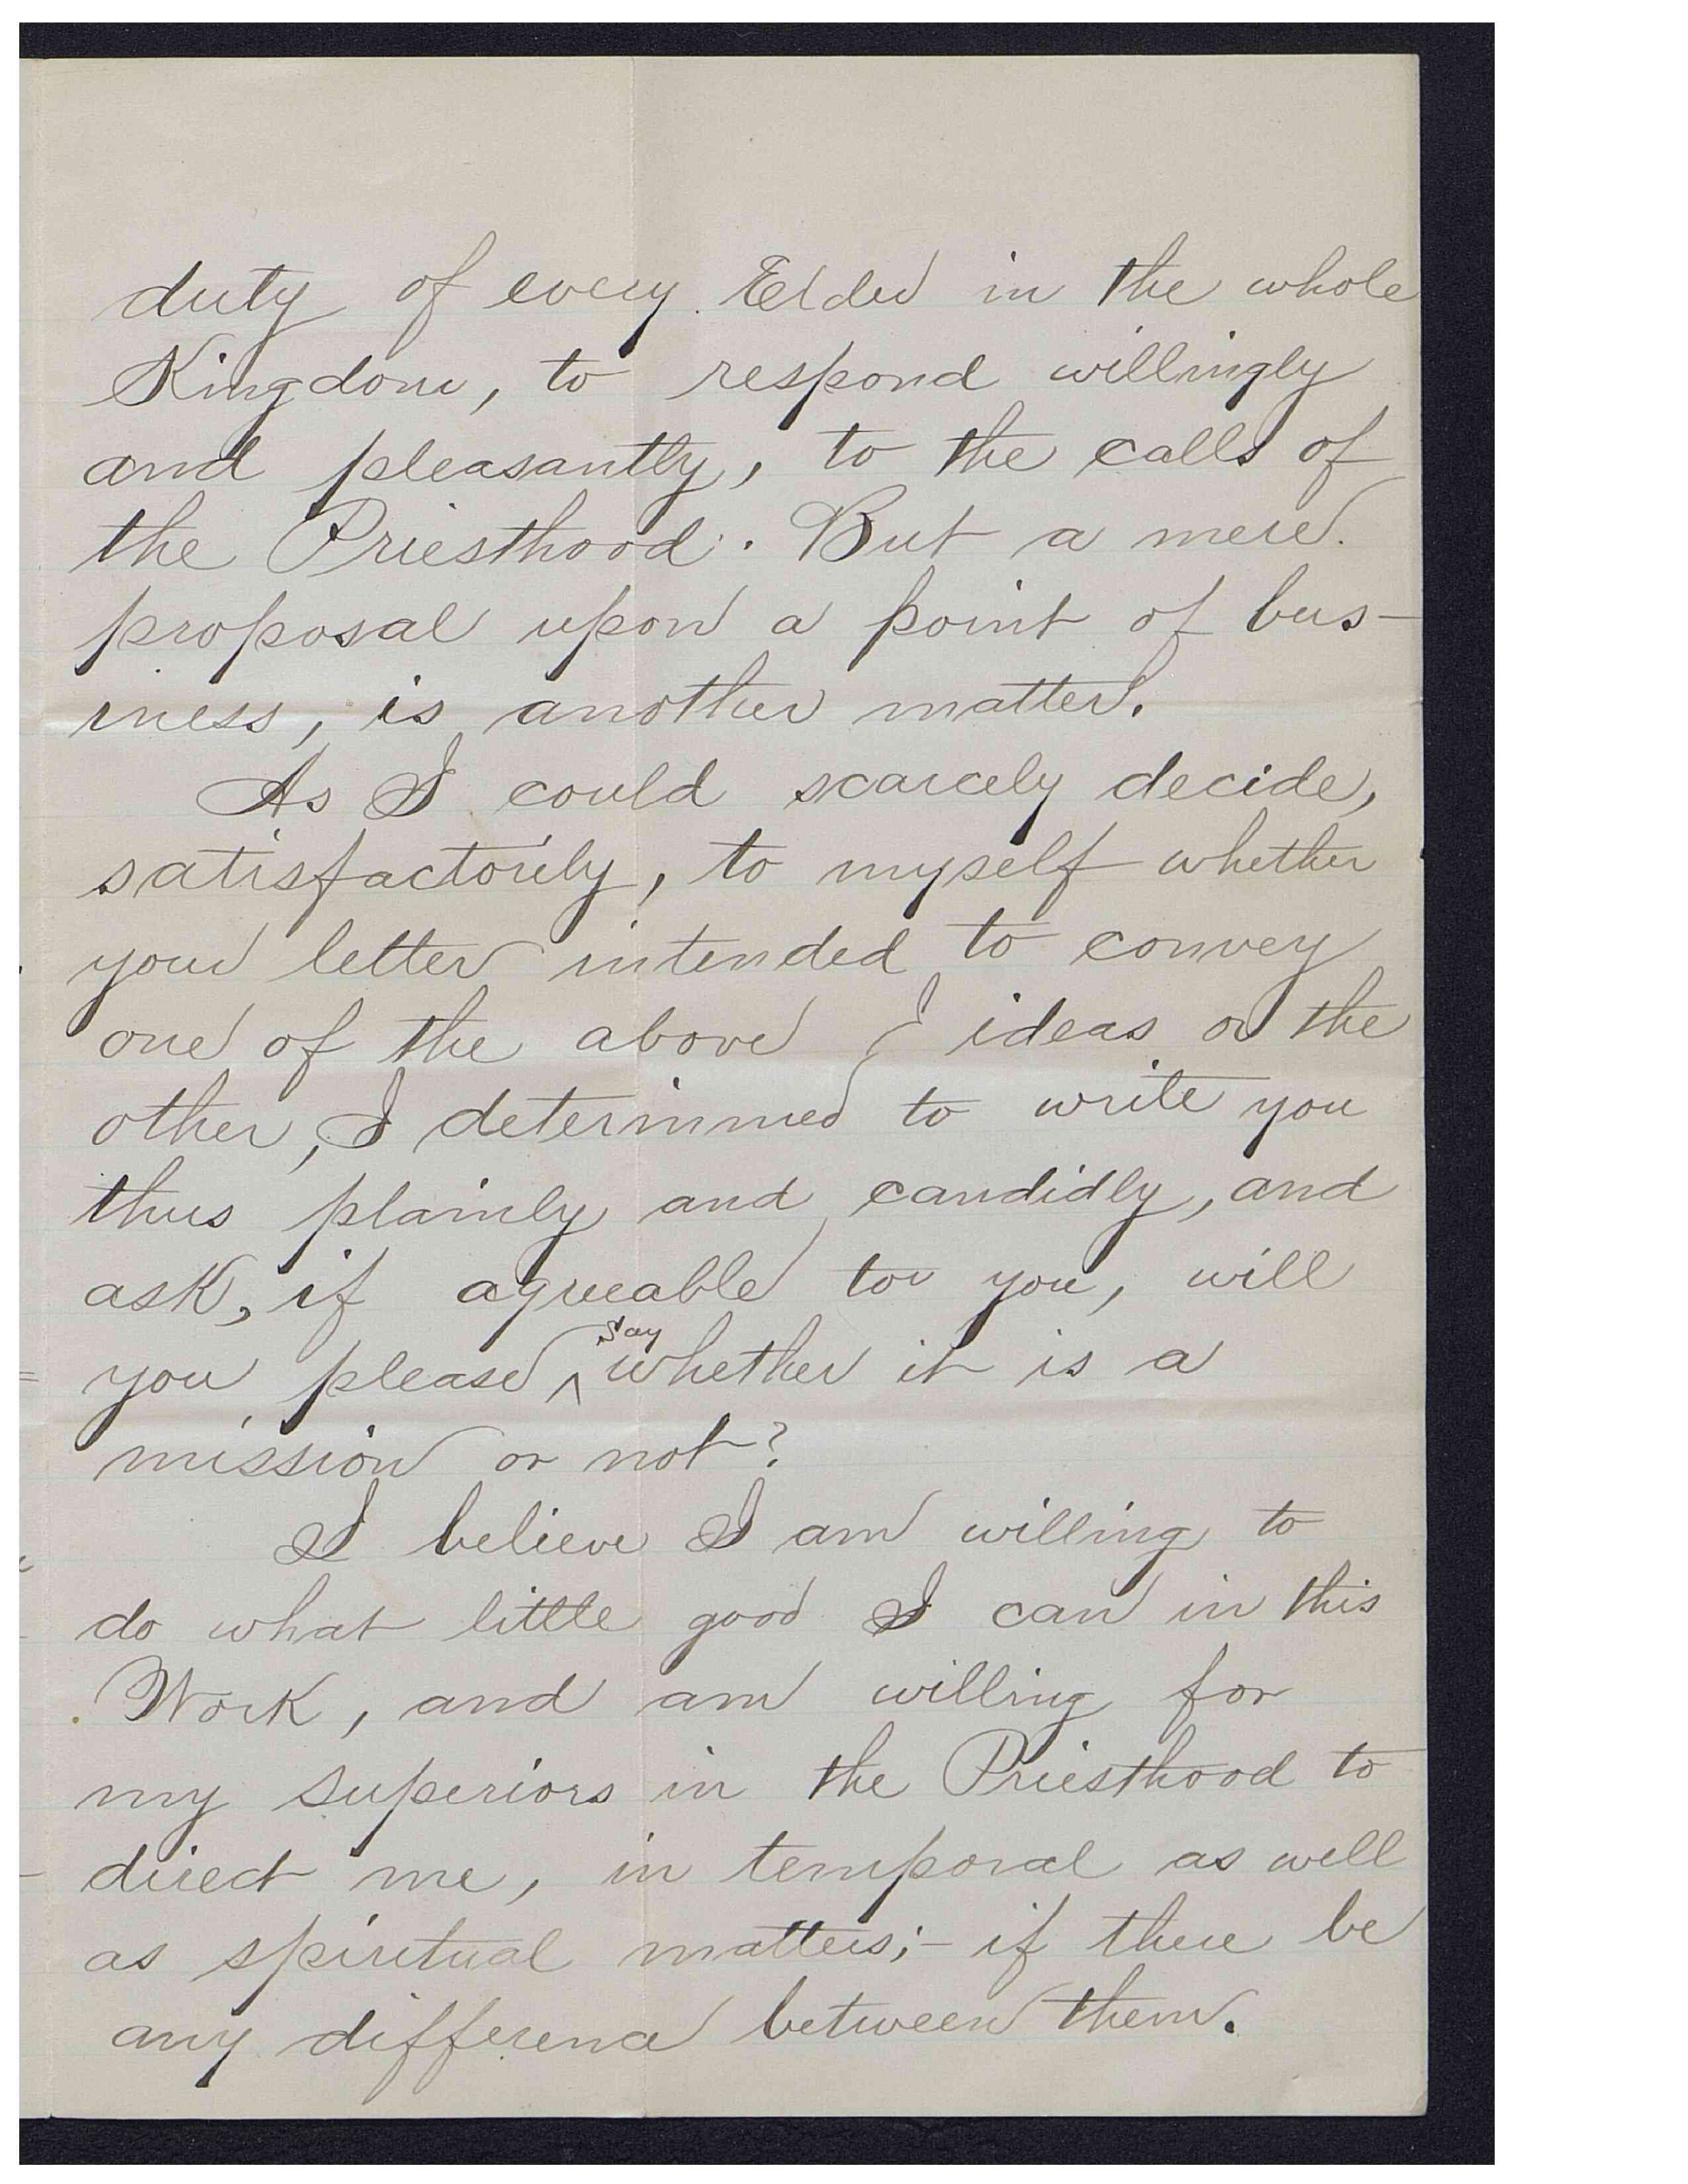 duty of every Elder in the whole
Kingdom, to respond willingly
and pleasantly, to the calls of
the Priesthood. But a mere
proposal upon a point of bus-
iness, is another matter.
As I could scarcely decide,
satisfactorily, to myself whether
your letter intended to convey
one of the above ideas or the
other, I determined to write you
thus plainly and candidly, and
ask, if agreeable to you, will
you please ^ say whether it is a
mission or not?
I believe I am willing to
do what little good I can in this
Work, and am willing for
my superiors in the Priesthood to
direct me, in temporal as well
as spiritual matters;- if there be
any difference between them.